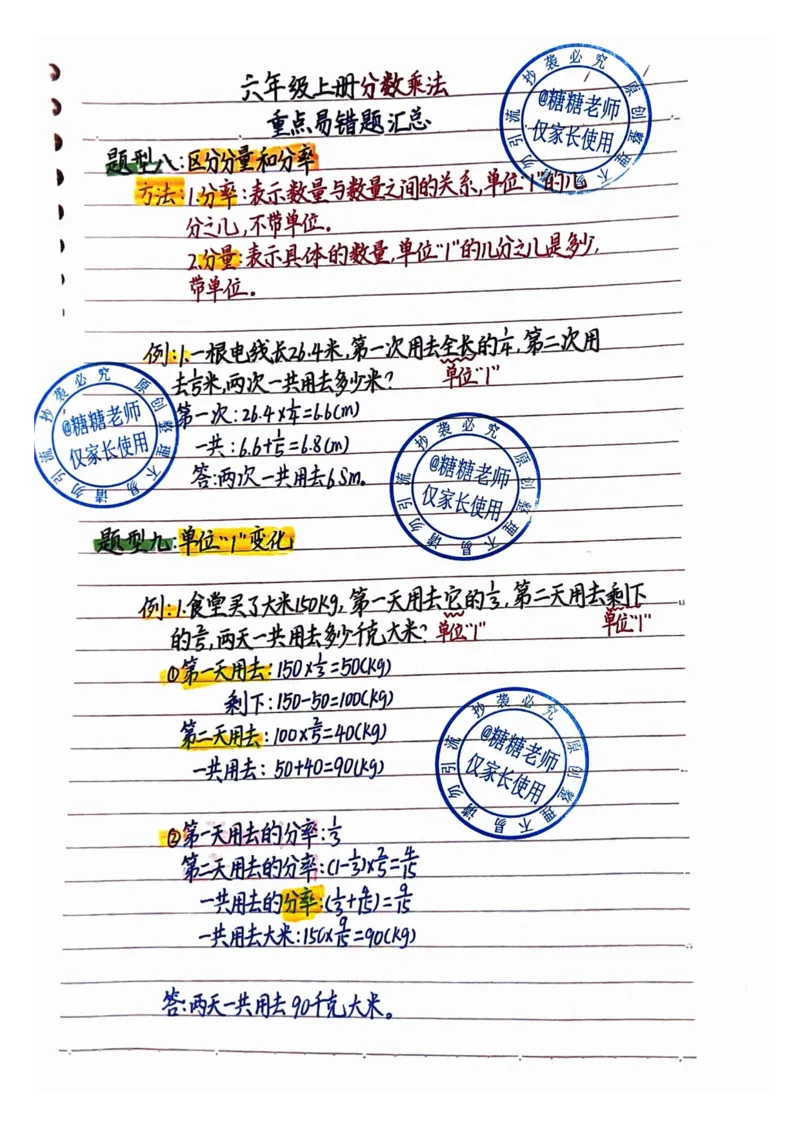 六年级上册分数乘法
重点易错题汇总
题型八:区分分量和分率
方法:1.分率:表示数量与数量之间的关系,单位"1"的几
分之几,不带单位。
2.分量:表示具体的数量,单位"1"的几分之几是多少,
带单位。
例:1.一根电线长26.4米,第一次用去全长的1/4,第二次用
去1/5米,两次一共用去多少米?
单位"1"
第一次:26.4×1/4=6.6(m)
一共:6.6+1/5=6.8(m)
答:两次一共用去6.8m。
题型九:单位"1"变化
例:1.食堂买了大米150kg,第一天用去它的1/3,第二天用去剩下
的2/5,两天一共用去多少千克大米?
单位"1"
单位"1"
①第一天用去:150×1/3=50(kg)
剩下:150-50=100(kg)
第二天用去:100×2/5=40(kg)
一共用去:50+40=90(kg)
②第一天用去的分率:1/3
第二天用去的分率:(1-1/3)×2/5=4/15
一共用去的分率:(1/3+4/15)=9/15
一共用去大米:150×9/15=90(kg)
答:两天一共用去90千克大米。
@糖糖老师
仅家长使用
原创整理不易请勿引流抄袭必究
@糖糖老师
仅家长使用
原创整理不易请勿引流抄袭必究
@糖糖老师
仅家长使用
原创整理不易请勿引流抄袭必究
@糖糖老师
仅家长使用
原创整理不易请勿引流抄袭必究